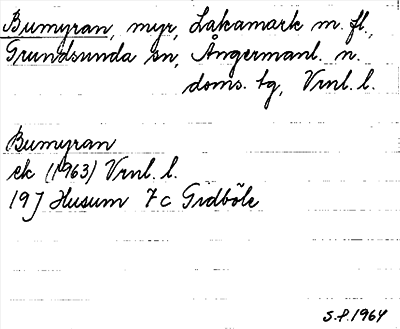 Bumyran, myr, Lakamark m. fl.,
Grundsunda sn, Ångermanl. n.
doms. tg, Vrnl. l.
Bumyran
ek (1963) Vrnl. l.
19J Husum 7c Gidböle
S.P. 1964